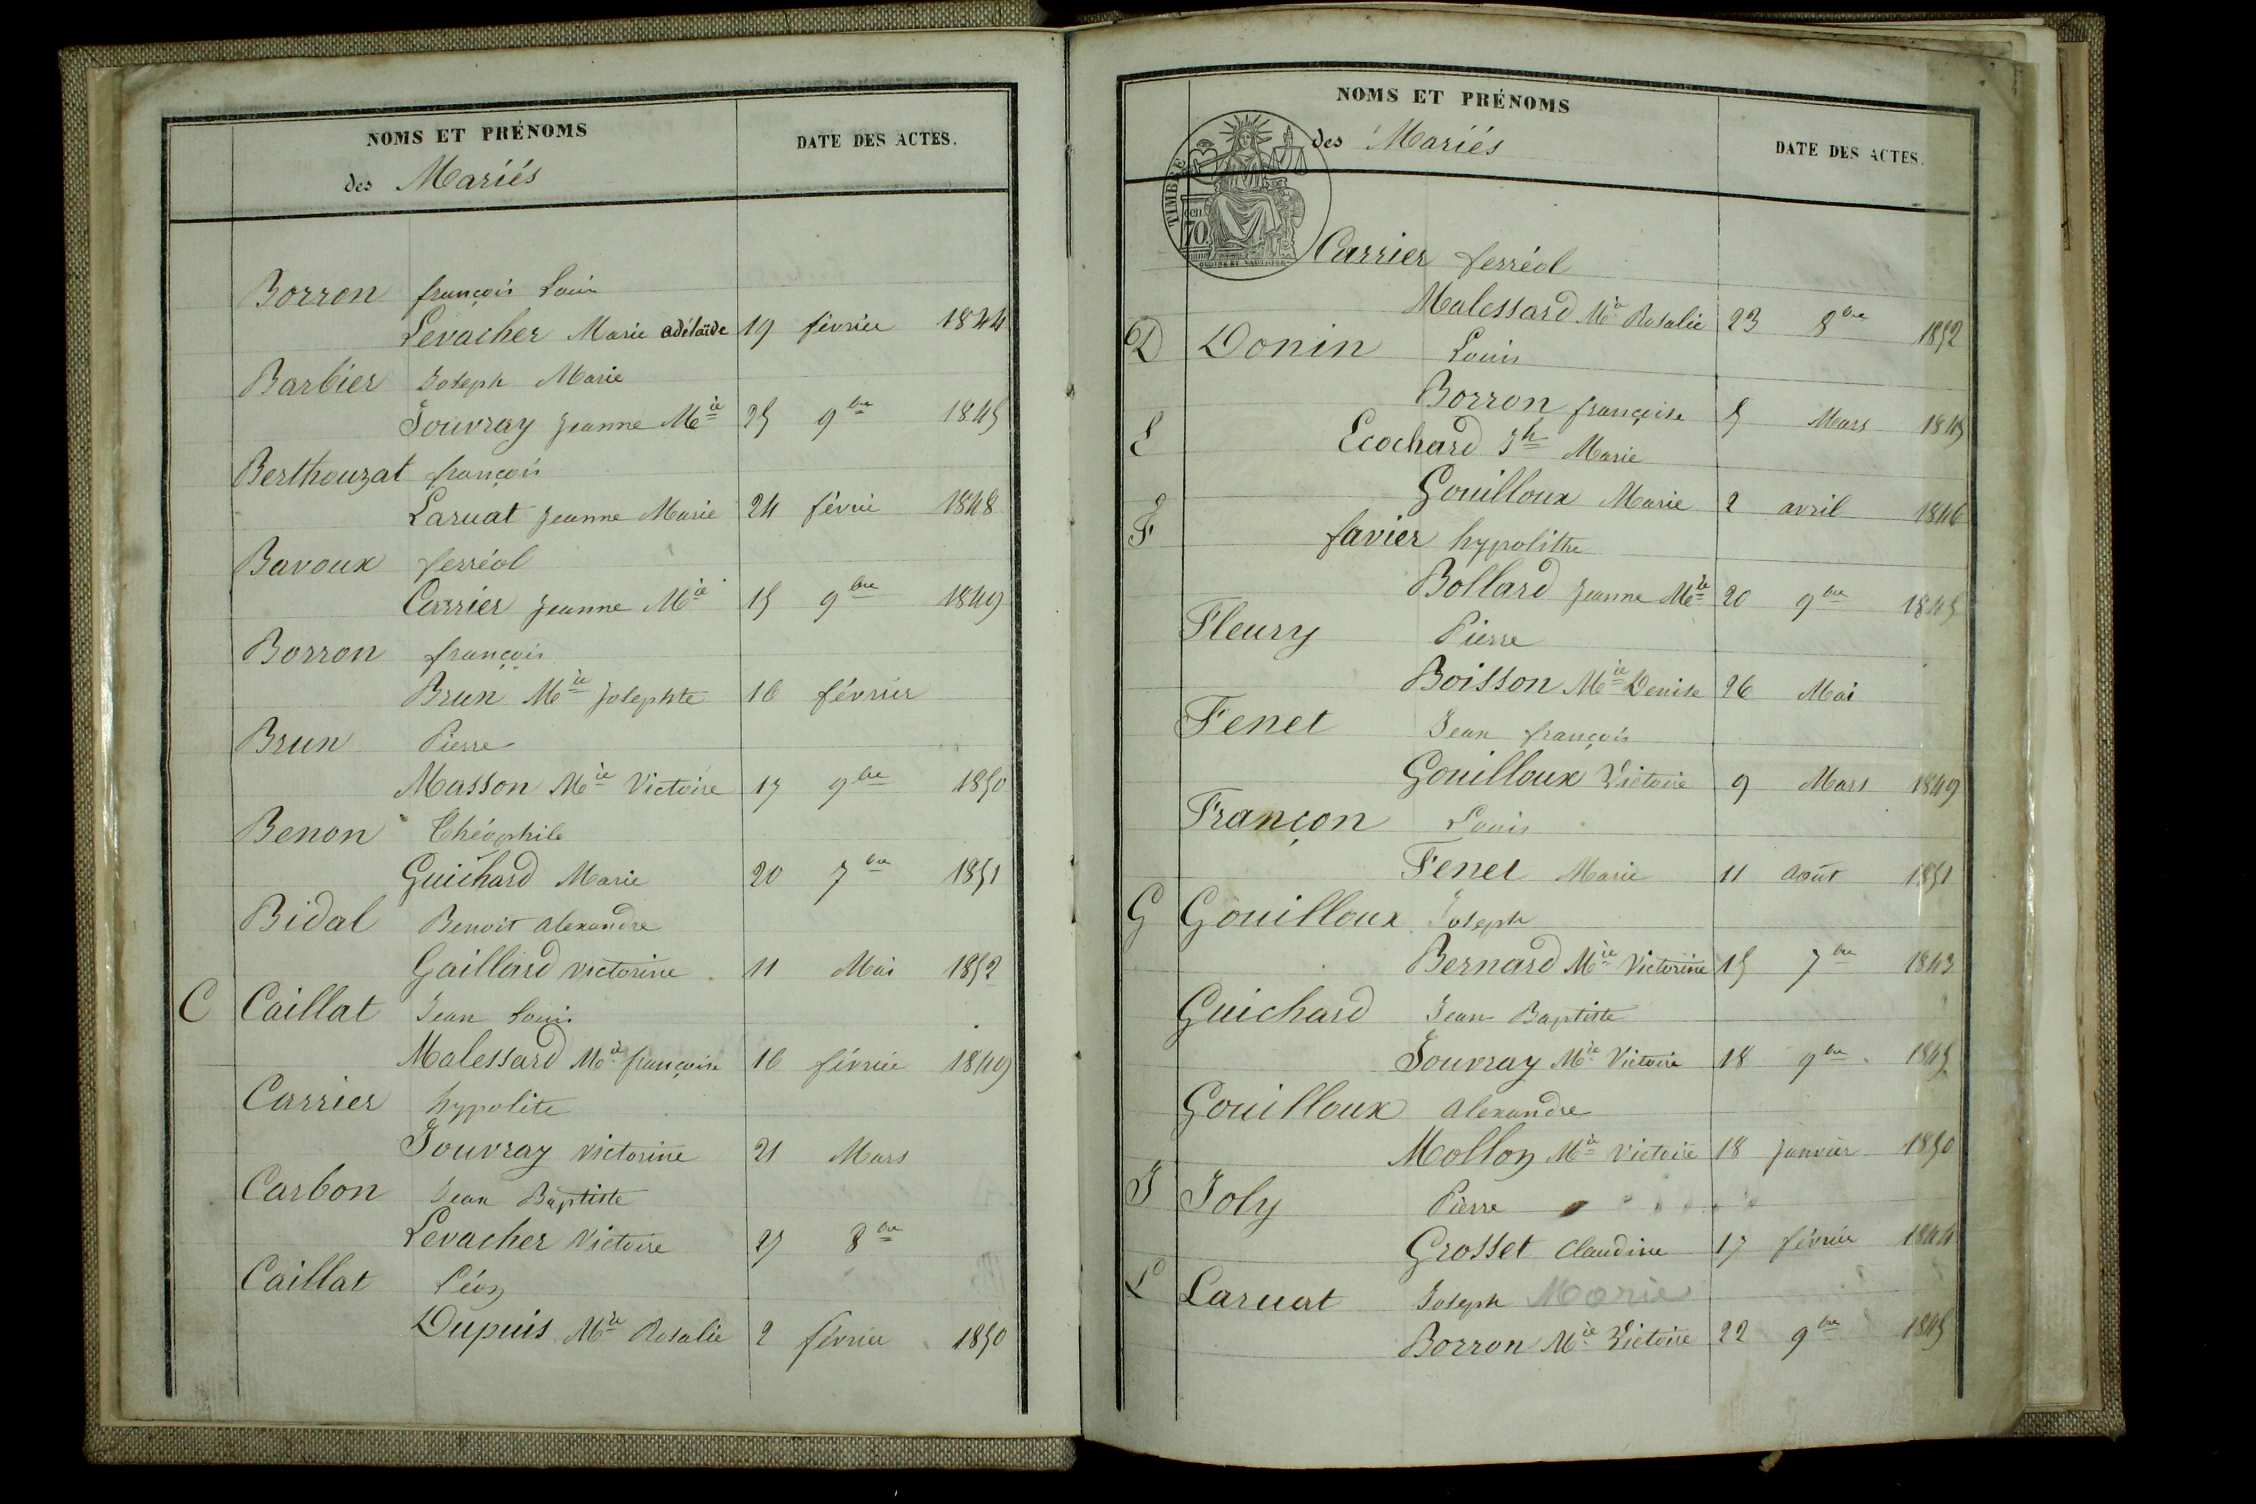 NOMS ET PRÉNOMS DATE DES ACTES.
des Mariés
Borron françois Louis
Levacher Marie adélaïde 19 février 1844
Barbier Joseph Marie
Jouvray Jeanne Mie 25 9bre 1845
Berthouzat françois
Laruat Jeanne Marie 24 févrie 1848
Bavoux ferréol
Carrier Jeanne Mie 15 9bre 1849
Borron françois
Brun Mie Josephte 16 février
Brun Pierre
Masson Mie Victoire 17 9bre 1850
Benon Théophile
Guichard Marie 20 7bre 1851
Bidal Benoit alexandre
Gaillard victorine 11 Mai 1852
C Caillat Jean Louis
Malessard Mie françoise 16 février 1849
Carrier hypolite
Jouvray victorine 21 Mars
Carbon Jean Baptiste
Levacher Victoire 27 8bre
Caillat Léon
Dupuis Mie Rosalie 2 février 1850
NOMS ET PRÉNOMS DATE DES ACTES.
des Mariés
TIMBRE
70
Carrier ferréol
Malessard Mie Rosalie 23 8bre 1852
D Donin Louis
Borron françoise 5 Mars 1845
E Ecochard Jh Marie
Gouilloux Marie 2 avril 1846
F favier hypolithe
Bollard Jeanne Mie 20 9bre 1845
Fleury Pierre
Boisson Mie Denise 26 Mai
Fenet Jean françois
Gouilloux Victoire 9 Mars 1849
Françon Louis
Fenet Marie 11 août 1851
G Gouilloux Joseph
Bernard Mie Victorine 15 7bre 1843
Guichard Jean Baptiste
Jouvray Mie Victoire 18 9bre 1845
Gouilloux alexandre
Mollon Mie Victoire 18 Janvier 1850
J Joly Pierre
Grosset Claudine 17 février 1844
L Laruat Joseph Marie
Borron Mie Victoire 22 9bre 1845